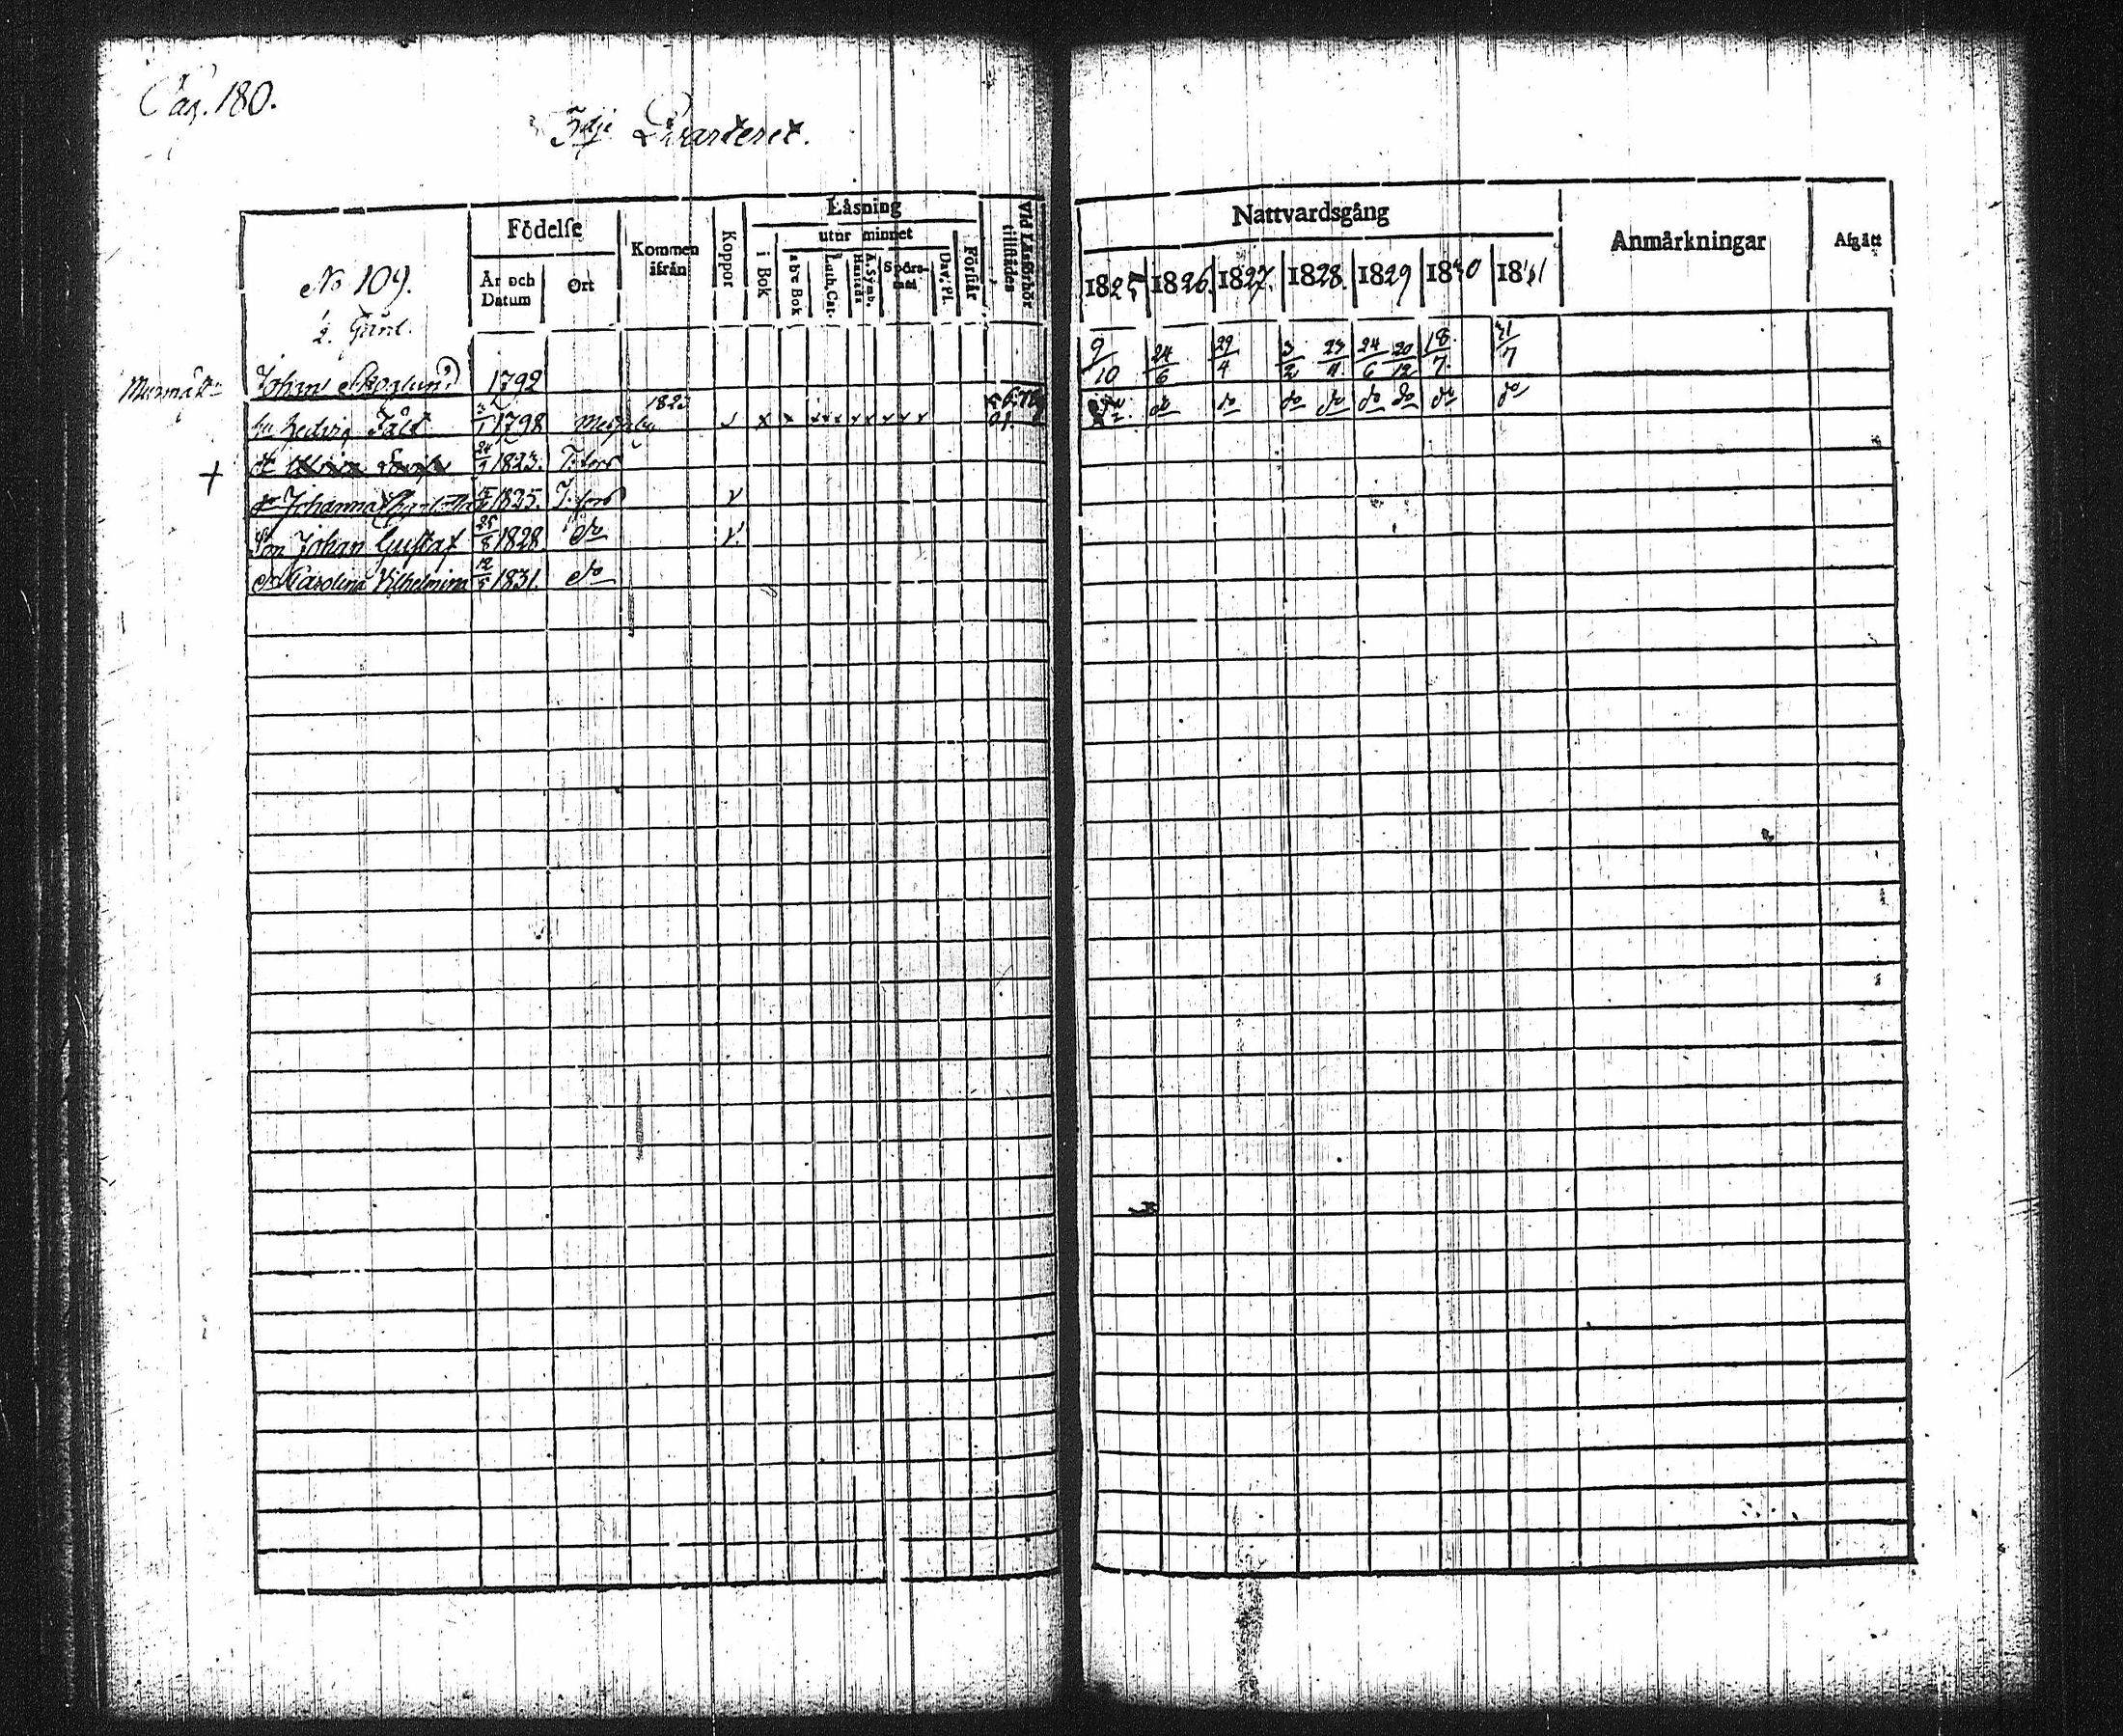 Pag. 180.
3dje Qvarteret.
No 109.
½. Gård.
Födelse
År och Datum
Ort
Kommen ifrån
Koppor
Läsning
i Bok
utur minnet
abc Bok
Luth. Cat.
A. Symb. Hustafla
Spörsmål
Dav. Ps.
Förstår
Vid Läsförhör tillstädes
Nattvardsgång
1825 1826. 1827. 1828. 1829 1830 1831
Anmärkningar
Afgått
Johan Skoglund 1792 9/10 24/6 29/4 24/6 20/12 18/7 31/7
hu Hedvig Fält 1798 x x x x x x x x x do do do do do do do do
+ 1823. T:fors
Johanna Charlotta 1825. T:fors v
Son Johan Gustaf 25/8 1828 do v
Carolina Vilhelmina 12/5 1831. do